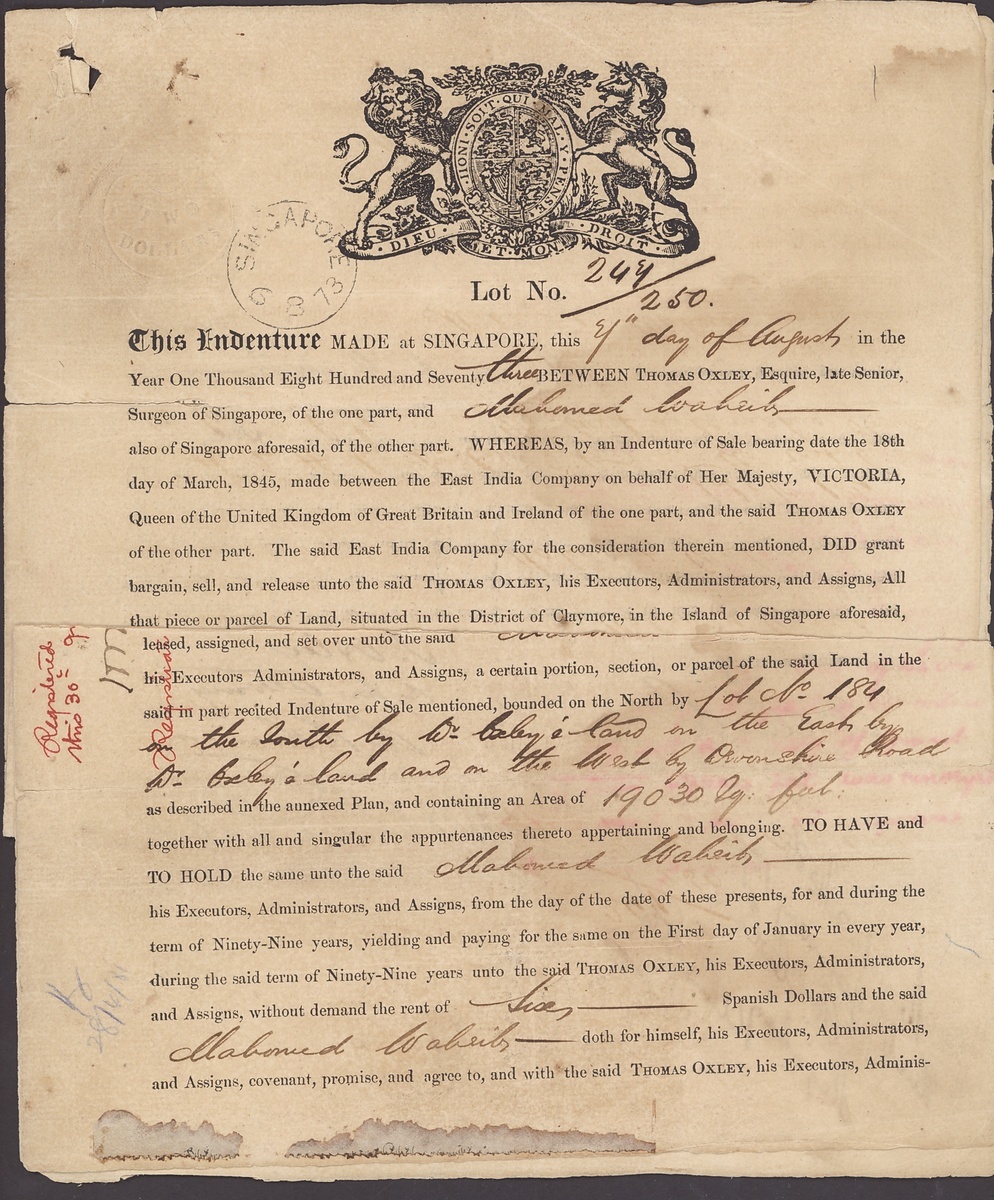 HONI·SOIT·QUI·MAL·Y·PENSE
·DIEU· ET·MON ·DROIT·
SINGAPORE
6 8 73
Lot No. 249/250.
This Indenture MADE at SINGAPORE, this day of August in the
Year One Thousand Eight Hundred and Seventy three BETWEEN THOMAS OXLEY, Esquire, late Senior,
Surgeon of Singapore, of the one part, and Mahomed Waheib
also of Singapore aforesaid, of the other part. WHEREAS, by an Indenture of Sale bearing date the 18th
day of March, 1845, made between the East India Company on behalf of Her Majesty, VICTORIA,
Queen of the United Kingdom of Great Britain and Ireland of the one part, and the said THOMAS OXLEY
of the other part. The said East India Company for the consideration therein mentioned, DID grant
bargain, sell, and release unto the said THOMAS OXLEY, his Executors, Administrators, and Assigns, All
that piece or parcel of Land, situated in the District of Claymore, in the Island of Singapore aforesaid,
leased, assigned, and set over unto the said
his Executors Administrators, and Assigns, a certain portion, section, or parcel of the said Land in the
said in part recited Indenture of Sale mentioned, bounded on the North by Lot No. 184
on the South by Dr. Oxley's land on the East by
Dr. Oxley's land and on the West by Devonshire Road
as described in the annexed Plan, and containing an Area of 19030 Sq: feet.
together with all and singular the appurtenances thereto appertaining and belonging. TO HAVE and
TO HOLD the same unto the said Mahomed Waheib
his Executors, Administrators, and Assigns, from the day of the date of these presents, for and during the
term of Ninety-Nine years, yielding and paying for the same on the First day of January in every year,
during the said term of Ninety-Nine years unto the said THOMAS OXLEY, his Executors, Administrators,
and Assigns, without demand the rent of Six Spanish Dollars and the said
Mahomed Waheib doth for himself, his Executors, Administrators,
and Assigns, covenant, promise, and agree to, and with the said THOMAS OXLEY, his Executors, Adminis-
Registered
this 30
Registrar